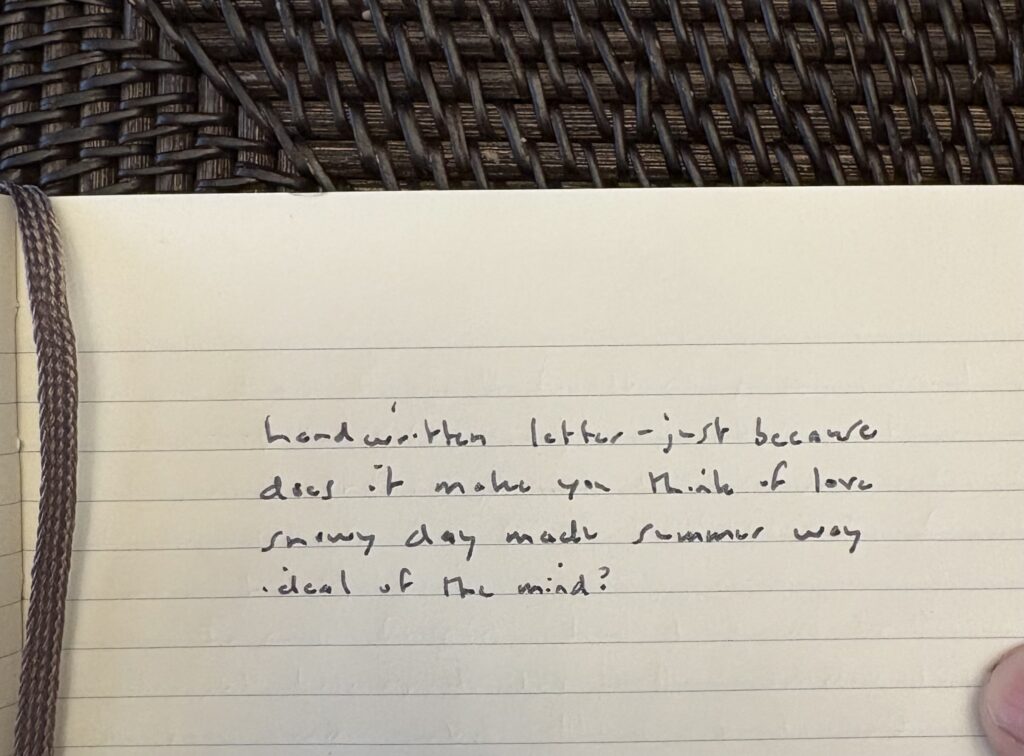 handwritten letter - just because
does it make you think of love
snowy day made summer way
ideal of the mind?